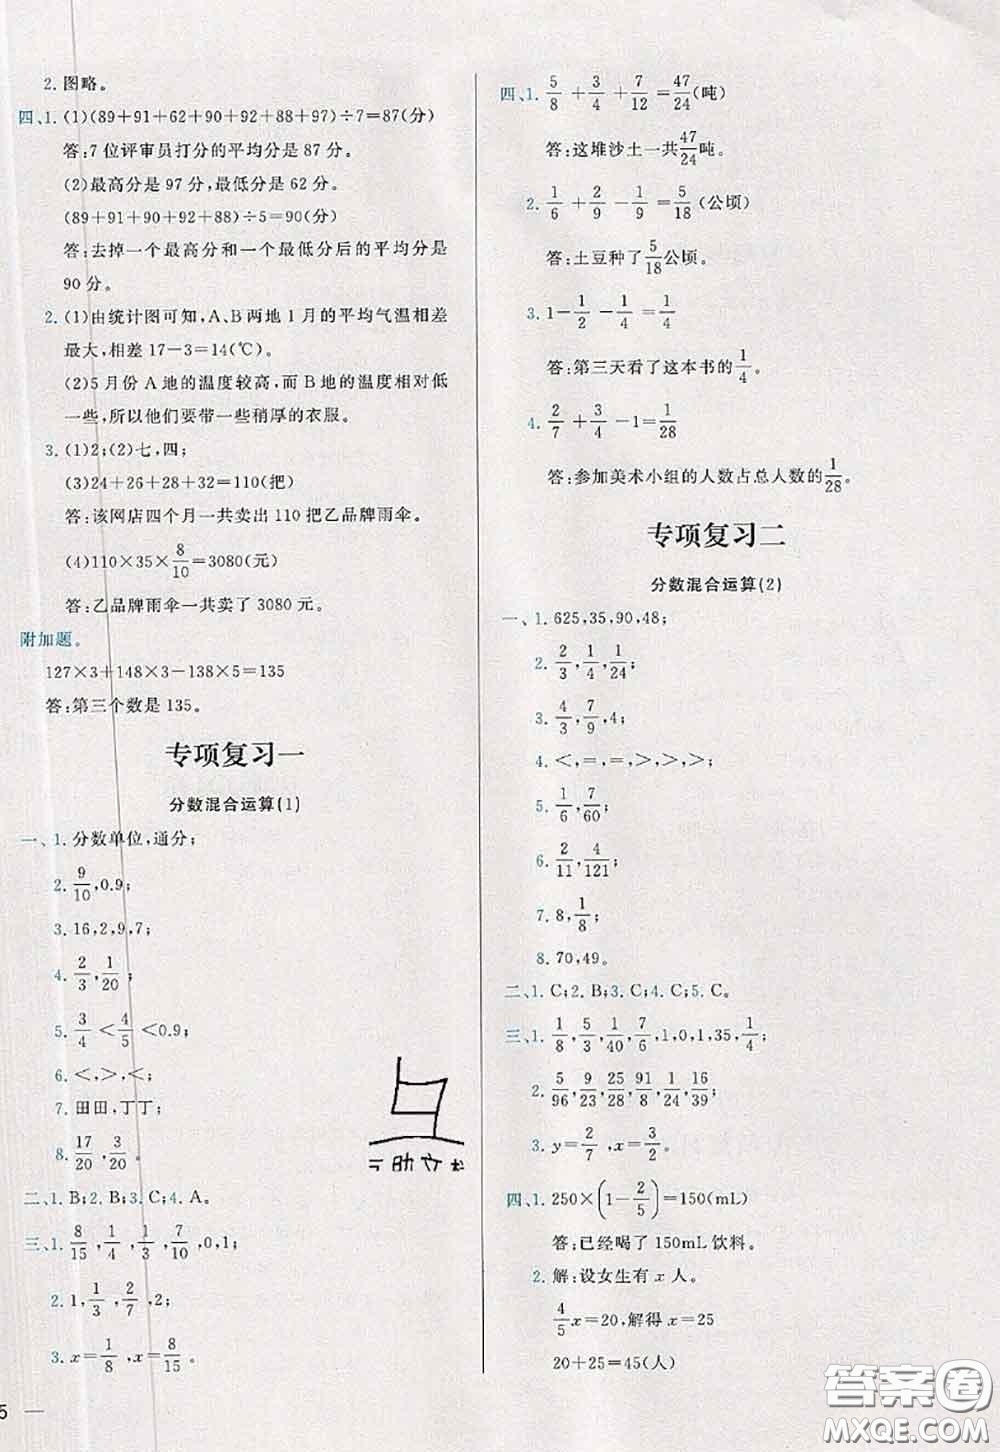 2. 图略。
四、1. (1)(89+91+62+90+92+88+97)÷7=87(分)
答:7 位评审员打分的平均分是 87 分。
(2)最高分是 97 分,最低分是 62 分。
(89+91+90+92+88)÷5=90(分)
答:去掉一个最高分和一个最低分后的平均分是
90 分。
2. (1)由统计图可知,A、B 两地 1 月的平均气温相差
最大,相差 17-3=14(℃)。
(2)5 月份 A 地的温度较高,而 B 地的温度相对低
一些,所以他们要带一些稍厚的衣服。
3. (1)2;(2)七,四;
(3)24+26+28+32=110(把)
答:该网店四个月一共卖出 110 把乙品牌雨伞。
(4)110×35×8/10=3080(元)
答:乙品牌雨伞一共卖了 3080 元。
附加题。
127×3+148×3-138×5=135
答:第三个数是 135。
专项复习一
分数混合运算(1)
一、1. 分数单位,通分;
2. 9/10,0.9;
3. 16,2,9,7;
4. 2/3,1/20;
5. 3/4<4/5<0.9;
6. <,>,<;
7. 田田,丁丁;
8. 17/20,3/20。
二、1. B;2. B;3. C;4. A。
三、1. 8/15,1/4,1/3,7/10,0,1;
2. 1,1/3,2/7,2;
3. x=1/8,x=8/15。
5 —
四、1. 5/8+3/4+7/12=47/24(吨)
答:这堆沙土一共47/24吨。
2. 1/6+2/9-1/9=5/18(公顷)
答:土豆种了5/18公顷。
3. 1-1/2-1/4=1/4
答:第三天看了这本书的1/4。
4. 2/7+3/4-1=1/28
答:参加美术小组的人数占总人数的1/28。
专项复习二
分数混合运算(2)
一、1. 625,35,90,48;
2. 2/3,1/4,1/24;
3. 4/3,7/9,4;
4. <,=,=,>,>,>;
5. 1/6,7/60;
6. 2/11,4/121;
7. 8,1/8;
8. 70,49。
二、1. C;2. B;3. C;4. C;5. C。
三、1. 1/8,5/3,1/40,7/6,1,0,1,35,1/4;
2. 5/96,9/23,25/28,91/8,1/24,16/39;
3. y=2/7,x=3/2。
四、1. 250×(1-2/5)=150(mL)
答:已经喝了 150mL 饮料。
2. 解:设女生有 x 人。
4/5x=20,解得 x=25
20+25=45(人)
答案圈
MXQE.COM